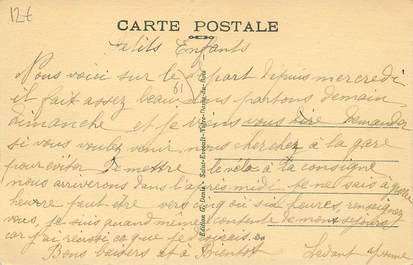 12€
CARTE POSTALE
Petits Enfants
Vous voici sur le départ depuis mercredi
il fait assez beau nous partons demain
61
dimanche et je vous dire demander
si vous voulez venir nous cherchez à la gare
pour éviter de mettre le vélo a la consigne
nous arriverons dans l'après midi je ne sais à quelle
heure peut être vers cinq ou six heures, renseignez
vous, je suis quand même contente de mon séjour
car j'ai réussi ce que je désirais.
Bons baisers et à Bientôt
Ledant Yvonne
Edition G. - Saint-Evroult-Notre-Dame-du-Bois